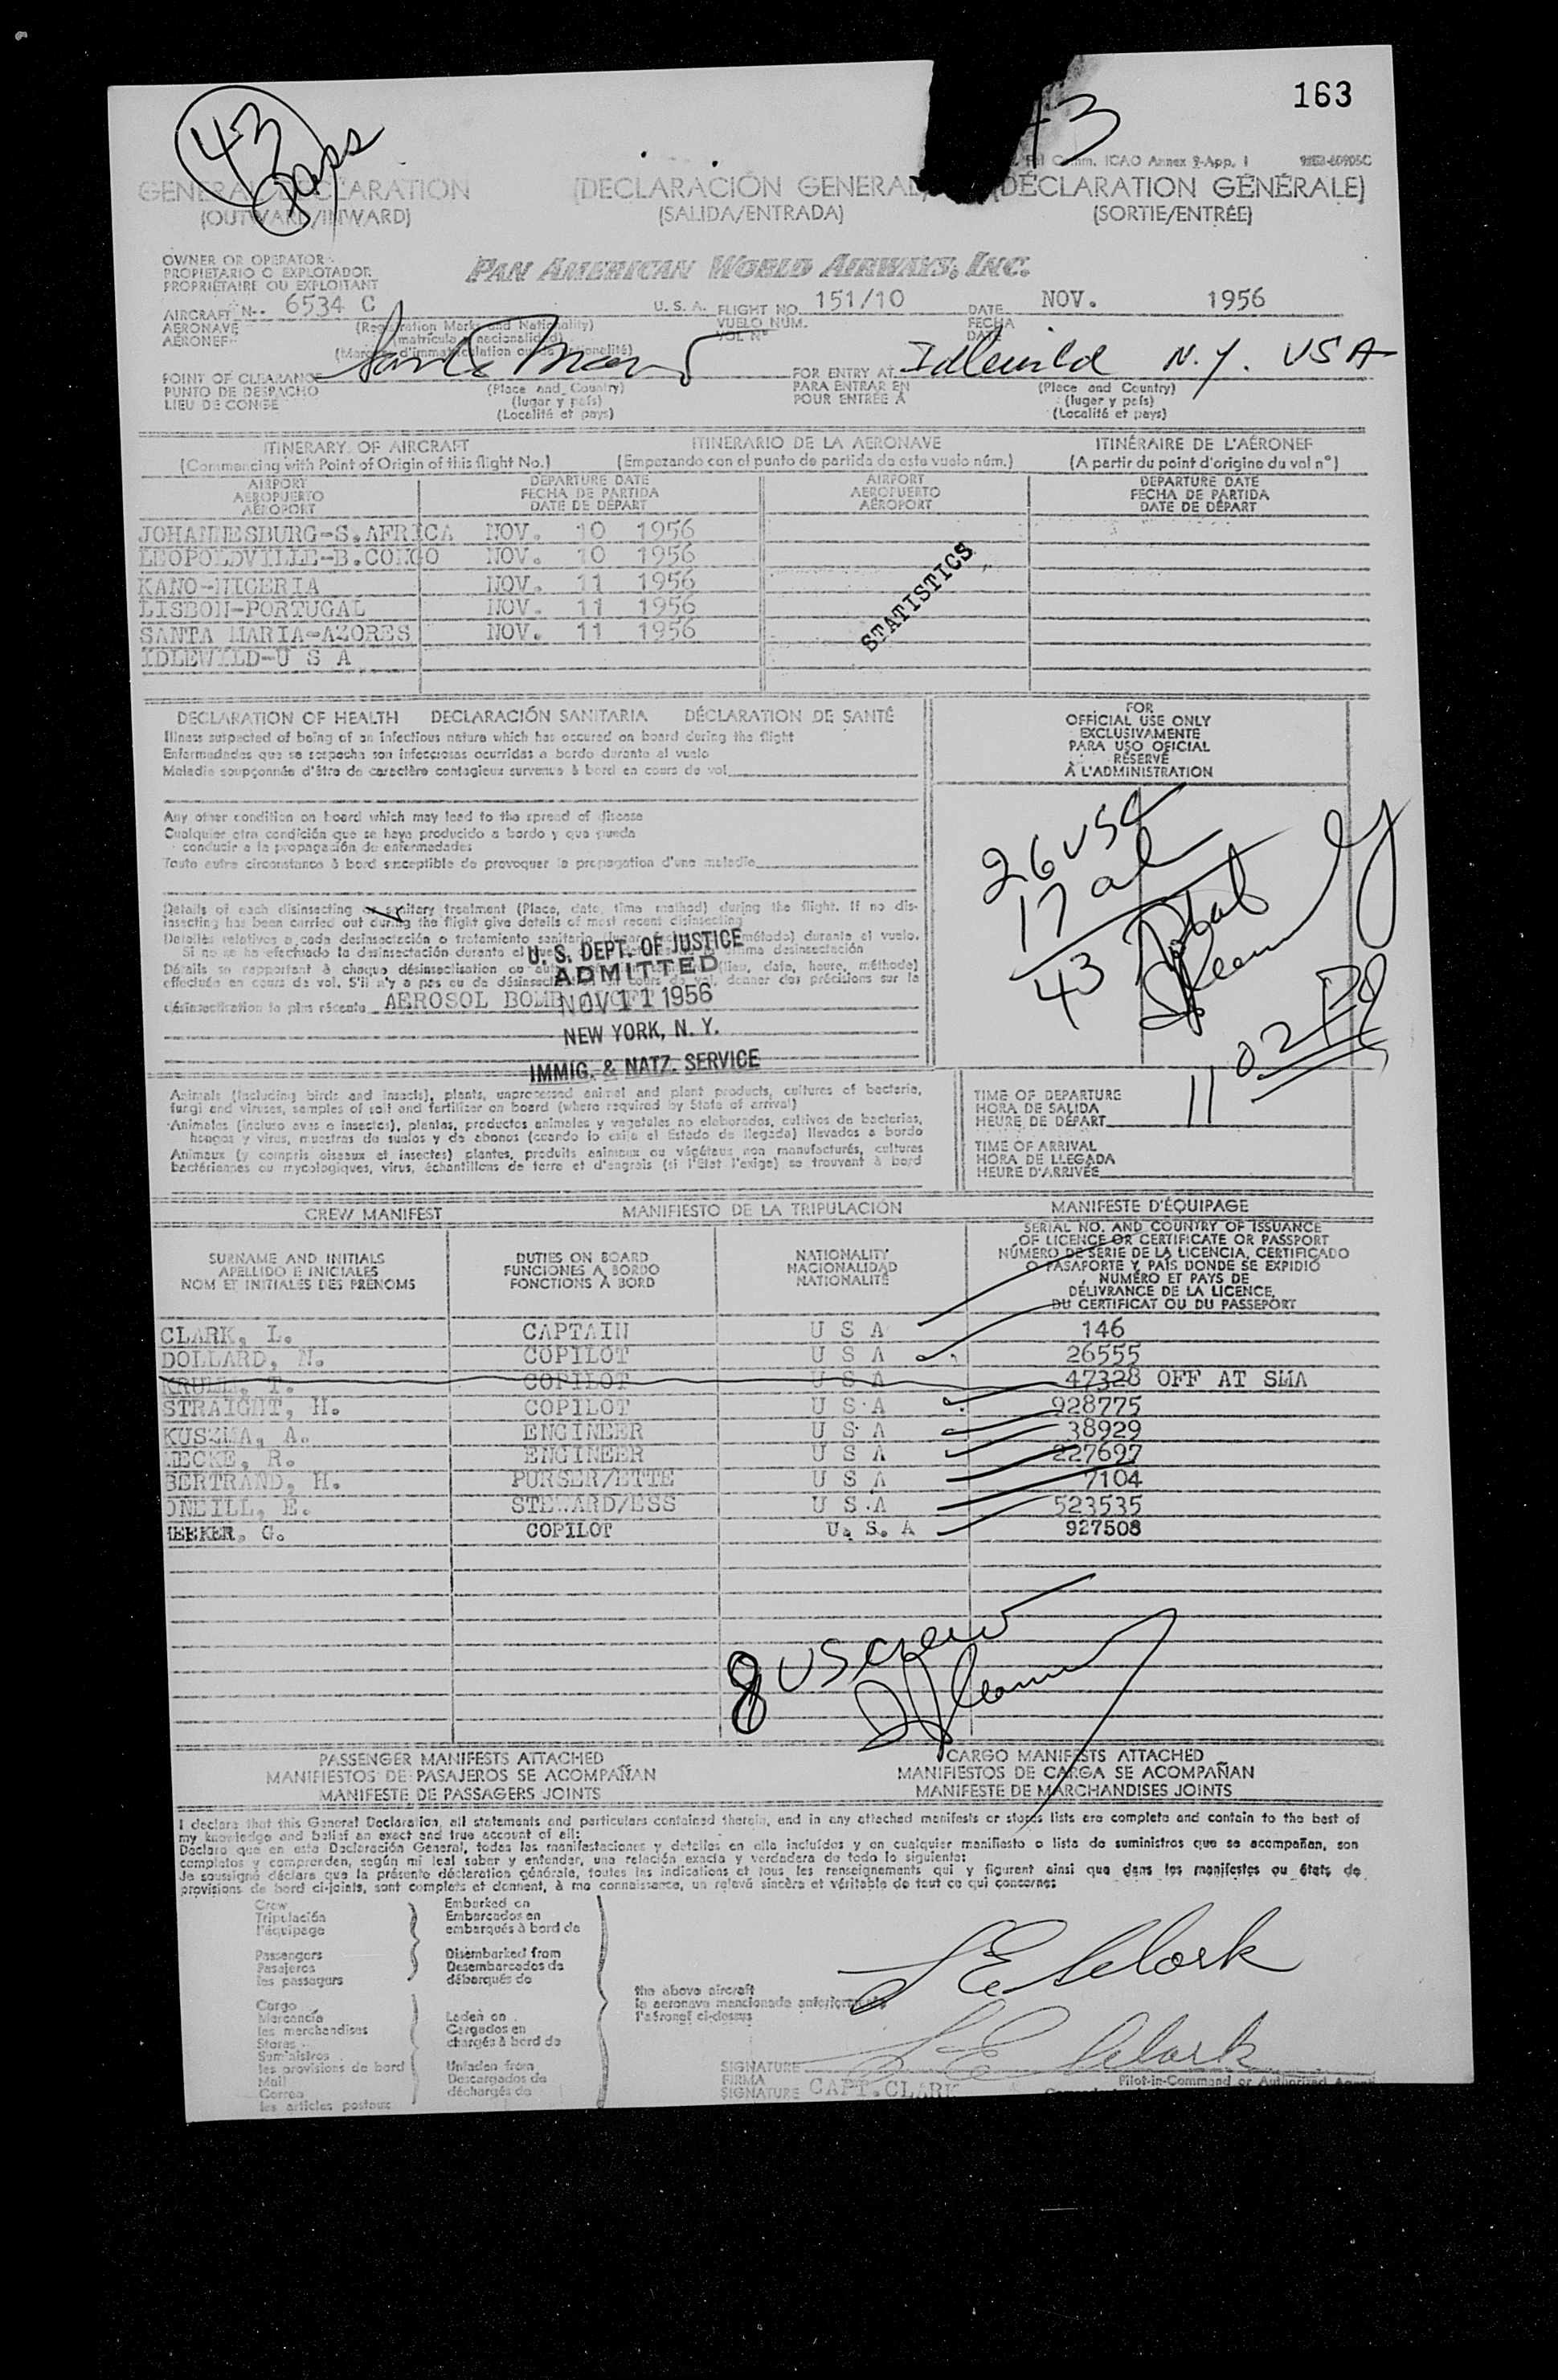 163
43
pass
43
ICAO Annex 9-App. 1
GENERAL DECLARATION (DECLARACIÓN GENERAL) (DÉCLARATION GÉNÉRALE)
(OUTWARD/INWARD) (SALIDA/ENTRADA) (SORTIE/ENTRÉE)
OWNER OR OPERATOR
PROPIETARIO O EXPLOTADOR
PROPRIÉTAIRE OU EXPLOITANT
PAN AMERICAN WORLD AIRWAYS, INC.
AIRCRAFT N-- 6534 C U. S. A. FLIGHT NO. 151/10 DATE NOV. 1956
AERONAVE (Registration Marks and Nationality) VUELO NÚM. FECHA
AÉRONEF (matrícula y nacionalidad) VOL Nº DATE
(Marques d'immatriculation ou de nationalité)
POINT OF CLEARANCE Santa Maria FOR ENTRY AT Idlewild N.Y. USA
PUNTO DE DESPACHO (Place and Country) PARA ENTRAR EN (Place and Country)
LIEU DE CONGÉ (lugar y país) POUR ENTRÉE À (lugar y país)
(Localité et pays) (Localité et pays)
ITINERARY OF AIRCRAFT ITINERARIO DE LA AERONAVE ITINÉRAIRE DE L'AÉRONEF
(Commencing with Point of Origin of this flight No.) (Empezando con el punto de partida de este vuelo núm.) (A partir du point d'origine du vol nº)
AIRPORT DEPARTURE DATE AIRPORT DEPARTURE DATE
AEROPUERTO FECHA DE PARTIDA AEROPUERTO FECHA DE PARTIDA
AÉROPORT DATE DE DÉPART AÉROPORT DATE DE DÉPART
JOHANNESBURG-S.AFRICA NOV. 10 1956
LEOPOLDVILLE-B.CONGO NOV. 10 1956
KANO-NIGERIA NOV. 11 1956
LISBON-PORTUGAL NOV. 11 1956
SANTA MARIA-AZORES NOV. 11 1956
IDLEWILD-U S A
STATISTICS
DECLARATION OF HEALTH DECLARACIÓN SANITARIA DÉCLARATION DE SANTÉ
Illness suspected of being of an infectious nature which has occured on board during the flight
Enfermedades que se sospecha son infecciosas ocurridas a bordo durante el vuelo
Maladie soupçonnée d'être de caractère contagieux survenue à bord en cours de vol
Any other condition on board which may lead to the spread of disease
Cualquier otra condición que se haya producido a bordo y que pueda
conducir a la propagación de enfermedades
Toute autre circonstance à bord susceptible de provoquer la propagation d'une maladie
Details of each disinsecting or sanitary treatment (Place, date, time method) during the flight. If no dis-
insecting has been carried out during the flight give details of most recent disinsecting
Detalles relativos a cada desinsectación o tratamiento sanitario método) durante el vuelo.
Si no se ha efectuado la desinsectación durante el desinsectación
Détails se rapportant à chaque désinsectisation ou (lieu, date, heure, méthode)
effectuée en cours de vol. S'il n'y a pas eu de désinsectisation en cours de vol, donner des précisions sur la
désinsectisation la plus récente AEROSOL BOMB
U. S. DEPT. OF JUSTICE
ADMITTED
NOV 11 1956
NEW YORK, N. Y.
IMMIG. & NATZ. SERVICE
FOR
OFFICIAL USE ONLY
EXCLUSIVAMENTE
PARA USO OFICIAL
RÉSERVÉ
À L'ADMINISTRATION
26 USC
17 al
43 Total
1102
Animals (including birds and insects), plants, unprocessed animal and plant products, cultures of bacteria,
fungi and viruses, samples of soil and fertilizer on board (where required by State of arrival)
Animales (incluso aves o insectos), plantas, productos animales y vegetales no elaborados, cultivos de bacterias,
hongos y virus, muestras de suelos y de abonos (cuando lo exija el Estado de llegada) llevados a bordo
Animaux (y compris oiseaux et insectes) plantes, produits animaux ou végétaux non manufacturés, cultures
bactériennes ou mycologiques, virus, échantillons de terre et d'engrais (si l'État l'exige) se trouvant à bord
TIME OF DEPARTURE
HORA DE SALIDA
HEURE DE DÉPART
TIME OF ARRIVAL
HORA DE LLEGADA
HEURE D'ARRIVÉE
CREW MANIFEST MANIFIESTO DE LA TRIPULACIÓN MANIFESTE D'ÉQUIPAGE
SURNAME AND INITIALS DUTIES ON BOARD NATIONALITY
APELLIDO E INICIALES FUNCIONES A BORDO NACIONALIDAD
NOM ET INITIALES DES PRÉNOMS FONCTIONS À BORD NATIONALITÉ
SERIAL NO. AND COUNTRY OF ISSUANCE
OF LICENCE OR CERTIFICATE OR PASSPORT
NÚMERO DE SERIE DE LA LICENCIA, CERTIFICADO
O PASAPORTE Y PAÍS DONDE SE EXPIDIÓ
NUMÉRO ET PAYS DE
DÉLIVRANCE DE LA LICENCE,
DU CERTIFICAT OU DU PASSEPORT
CLARK, L. CAPTAIN U S A 146
DOLLARD, N. COPILOT U S A 26555
KRULL, T. COPILOT U S A 47328 OFF AT SMA
STRAIGHT, H. COPILOT U S A 928775
KUSZMA, A. ENGINEER U S A 38929
LECKE, R. ENGINEER U S A 227697
BERTRAND, H. PURSER/ETTE U S A 7104
ONEILL, E. STEWARD/ESS U S A 523535
MEEKER, G. COPILOT U. S. A 927508
8 US crew
PASSENGER MANIFESTS ATTACHED CARGO MANIFESTS ATTACHED
MANIFIESTOS DE PASAJEROS SE ACOMPAÑAN MANIFIESTOS DE CARGA SE ACOMPAÑAN
MANIFESTE DE PASSAGERS JOINTS MANIFESTE DE MARCHANDISES JOINTS
I declare that this General Declaration, all statements and particulars contained therein, and in any attached manifests or stores lists are complete and contain to the best of
my knowledge and belief an exact and true account of all:
Declaro que en esta Declaración General, todas las manifestaciones y detalles en ella incluídos y en cualquier manifiesto o lista de suministros que se acompañan, son
completos y comprenden, según mi leal saber y entender, una relación exacta y verdadera de todo lo siguiente:
Je soussigné déclare que la présente déclaration générale, toutes les indications et tous les renseignements qui y figurent ainsi que dans les manifestes ou états de
provisions de bord ci-joints, sont complets et donnent, à ma connaissance, un relevé sincère et véritable de tout ce qui concerne:
Crew Embarked on
Tripulación Embarcados en
l'équipage embarqués à bord de
Passengers Disembarked from
Pasajeros Desembarcados de
les passagers débarqués de
Cargo
Mercancía Laden on
les marchandises Cargados en
Stores chargés à bord de
Suministros
les provisions de bord Unladen from
Mail Descargados de
Correo déchargés de
les articles postaux
the above aircraft
la aeronave mencionada anteriormente
l'aéronef ci-dessus
L E Clark
L E Clark
SIGNATURE
FIRMA Pilot-in-Command or Authorized Agent
SIGNATURE CAPT. CLARK